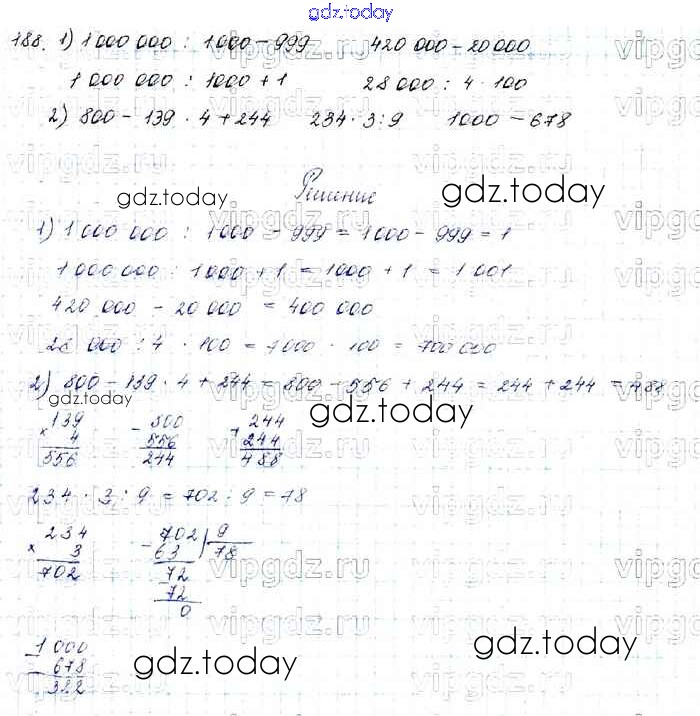 gdz.today
188. 1) 1 000 000 : 1000 - 999 420 000 - 20 000
1 000 000 : 1000 + 1 28 000 : 4 · 100
2) 800 - 139 · 4 + 244 234 · 3 : 9 1000 - 678
Решение
gdz.today gdz.today
1) 1 000 000 : 1000 - 999 = 1000 - 999 = 1
1 000 000 : 1000 + 1 = 1000 + 1 = 1 001
420 000 - 20 000 = 400 000
28 000 : 4 · 100 = 7000 · 100 = 700 000
2) 800 - 139 · 4 + 244 = 800 - 556 + 244 = 244 + 244 = 488
gdz.today gdz.today
139 - 800 244
× 4 556 + 244
556 244 488
234 · 3 : 9 = 702 : 9 = 78
234 - 702 | 9
× 3 63 78
702 72
72
0
- 1 000
678
322
gdz.today gdz.today
vipgdz.ru